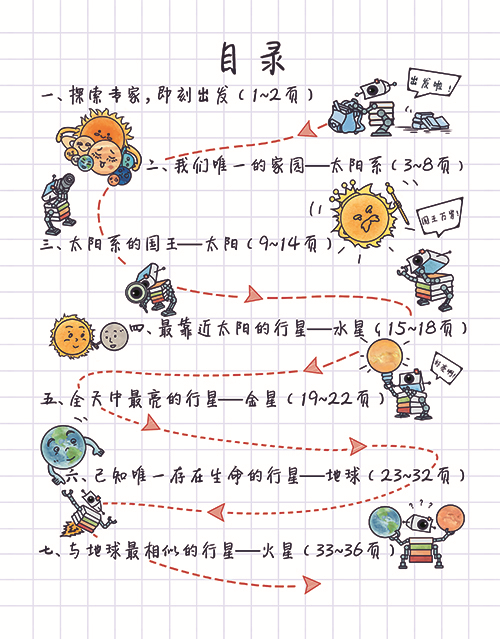 目录
出发啦!
一、探索专家,即刻出发(1~2页)
二、我们唯一的家园——太阳系(3~8页)
国王万岁!
三、太阳系的国王——太阳(9~14页)
四、最靠近太阳的行星——水星(15~18页)
五、全天中最亮的行星——金星(19~22页)
六、已知唯一存在生命的行星——地球(23~32页)
???
七、与地球最相似的行星——火星(33~36页)